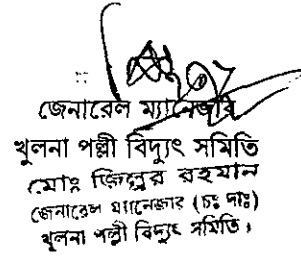 জেনারেল ম্যানেজার
খুলনা পল্লী বিদ্যুৎ সমিতি
মোঃ জিল্লুর রহমান
জেনারেল ম্যানেজার (চঃ দাঃ)
খুলনা পল্লী বিদ্যুৎ সমিতি।